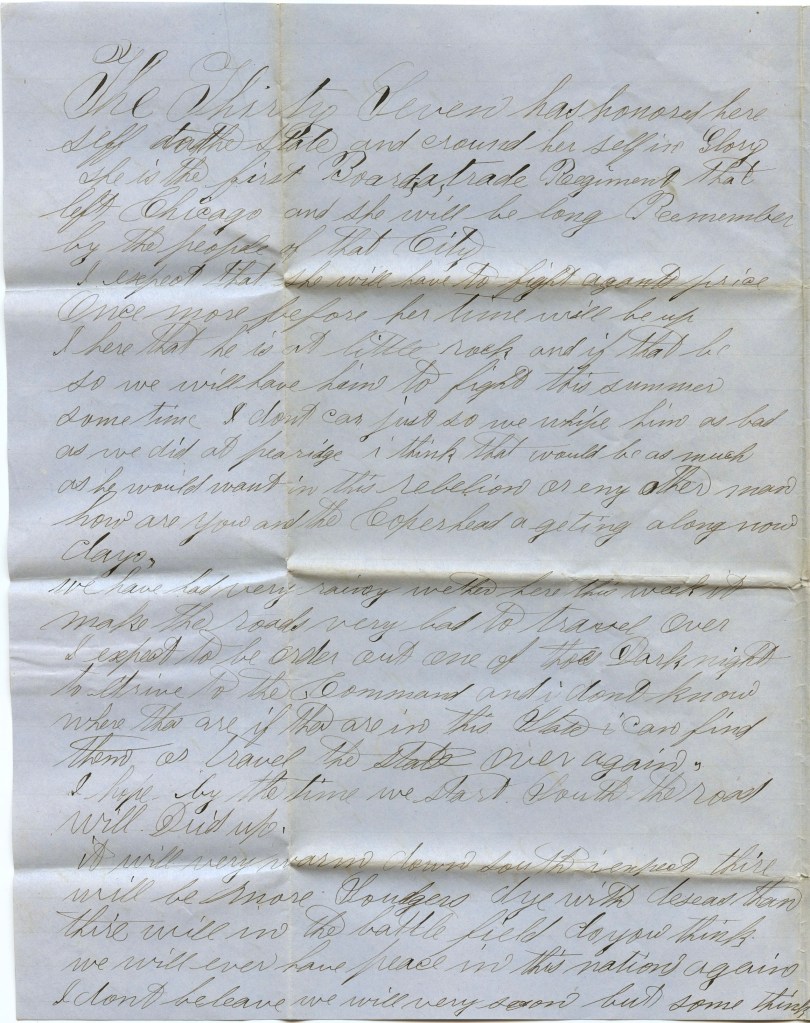 The Thirty Seven has honored here
self to the State and cround her self in Glory
she is the first Board, a, trade Regiment that
left Chicago and she will be long Reemember
by the people of that City
I expect that she will have to fight price
Once more before her time will be up
I here that he is at little rock and if that be
so we will have him to fight this summer
some time I dont car just so we whipe him as bad
as we did at pearidge i think that would be as much
as he would want in this rebelion or eny other man
how are you and the Coperhead a geting along now
days,
we have had very rainy wether here this week it
make the roads very bad to travel over
I expect to be order out one of thos Dark night
to drive to the Command and i dont know
where thar are, if thar are in this State i can find
them, or travel the state over again,,
I hope by the time we start South the road
will Drid up.
it will very warm down south i expect thire
will be more Souldgers dye with deseas than
thire will in the battle field do you think
we will ever have peace in this nation again
I dont beleave we will very soon but some think